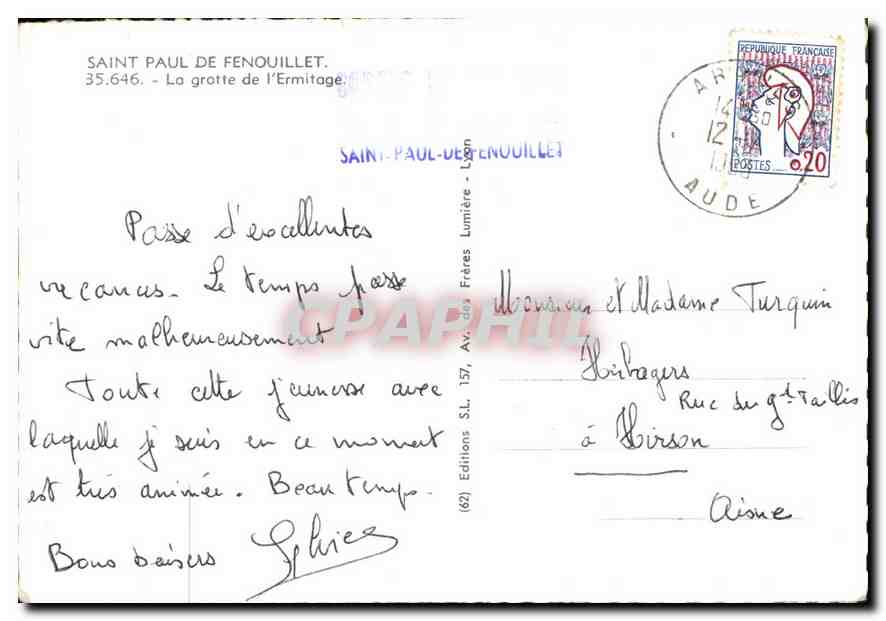 SAINT PAUL DE FENOUILLET.
35.646. - La grotte de l'Ermitage.
SAINT-PAUL-DE-FENOUILLET
REPUBLIQUE FRANÇAISE
POSTES 0,20
14 30
12
AUDE
Passe d'excellentes
vacances. Le temps passe
vite malheureusement
Toute cette jeunesse avec
laquelle je suis en ce moment
est très animée. Beau temps.
Bons baisers
(62) Editions S.L. 157, Av. des Frères Lumière - Lyon
Monsieur et Madame Turquin
Herbagers
Rue du gd Taillis
à Hirson
Aisne
CPAPHIL